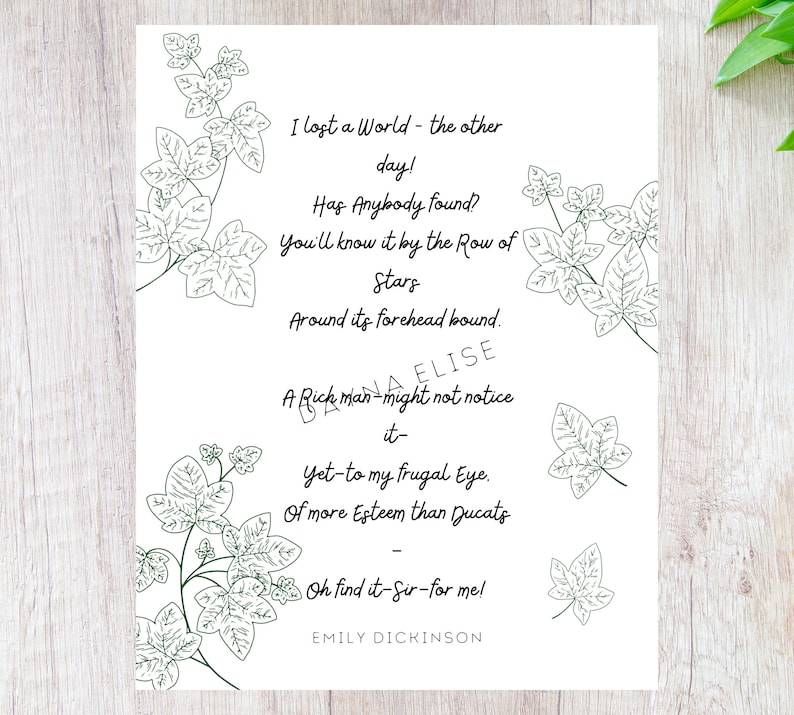 I lost a World - the other
day!
Has Anybody found?
You'll know it by the Row of
Stars
Around its forehead bound.
ELISE
A Rich man-might not notice
it-
Yet-to my frugal Eye,
Of more Esteem than Ducats
-
Oh find it-Sir-for me!
EMILY DICKINSON